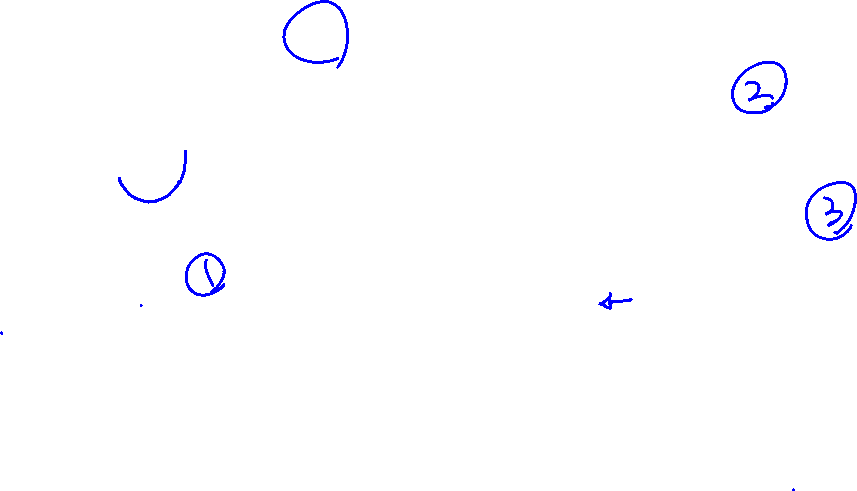 ②
③
①